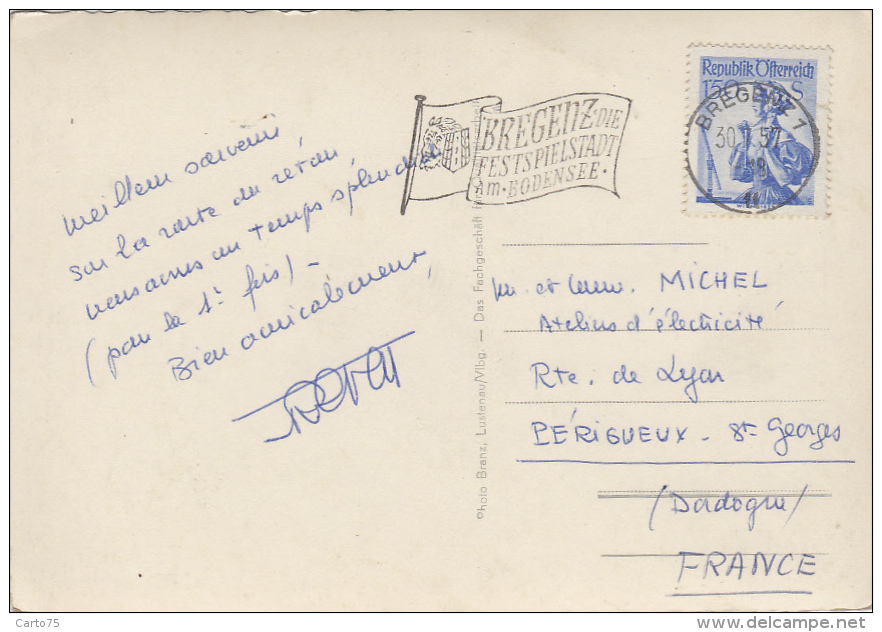 Meilleur souvenir
sur la route du retour
nous avons un temps splendide
(pour la 1e fois) -
Bien amicalement,
BREGENZ·DIE
FESTSPIELSTADT
AM·BODENSEE·
Republik Österreich
1.50 S
BREGENZ 1
30.7.57
18
Photo Branz, Lustenau/Vlbg. — Das Fachgeschäft für
M. et Mme. MICHEL
Ateliers d'électricité
Rte. de Lyon
PÉRIGUEUX - St Georges
(Dordogne)
FRANCE
Carto75
www.delcampe.net